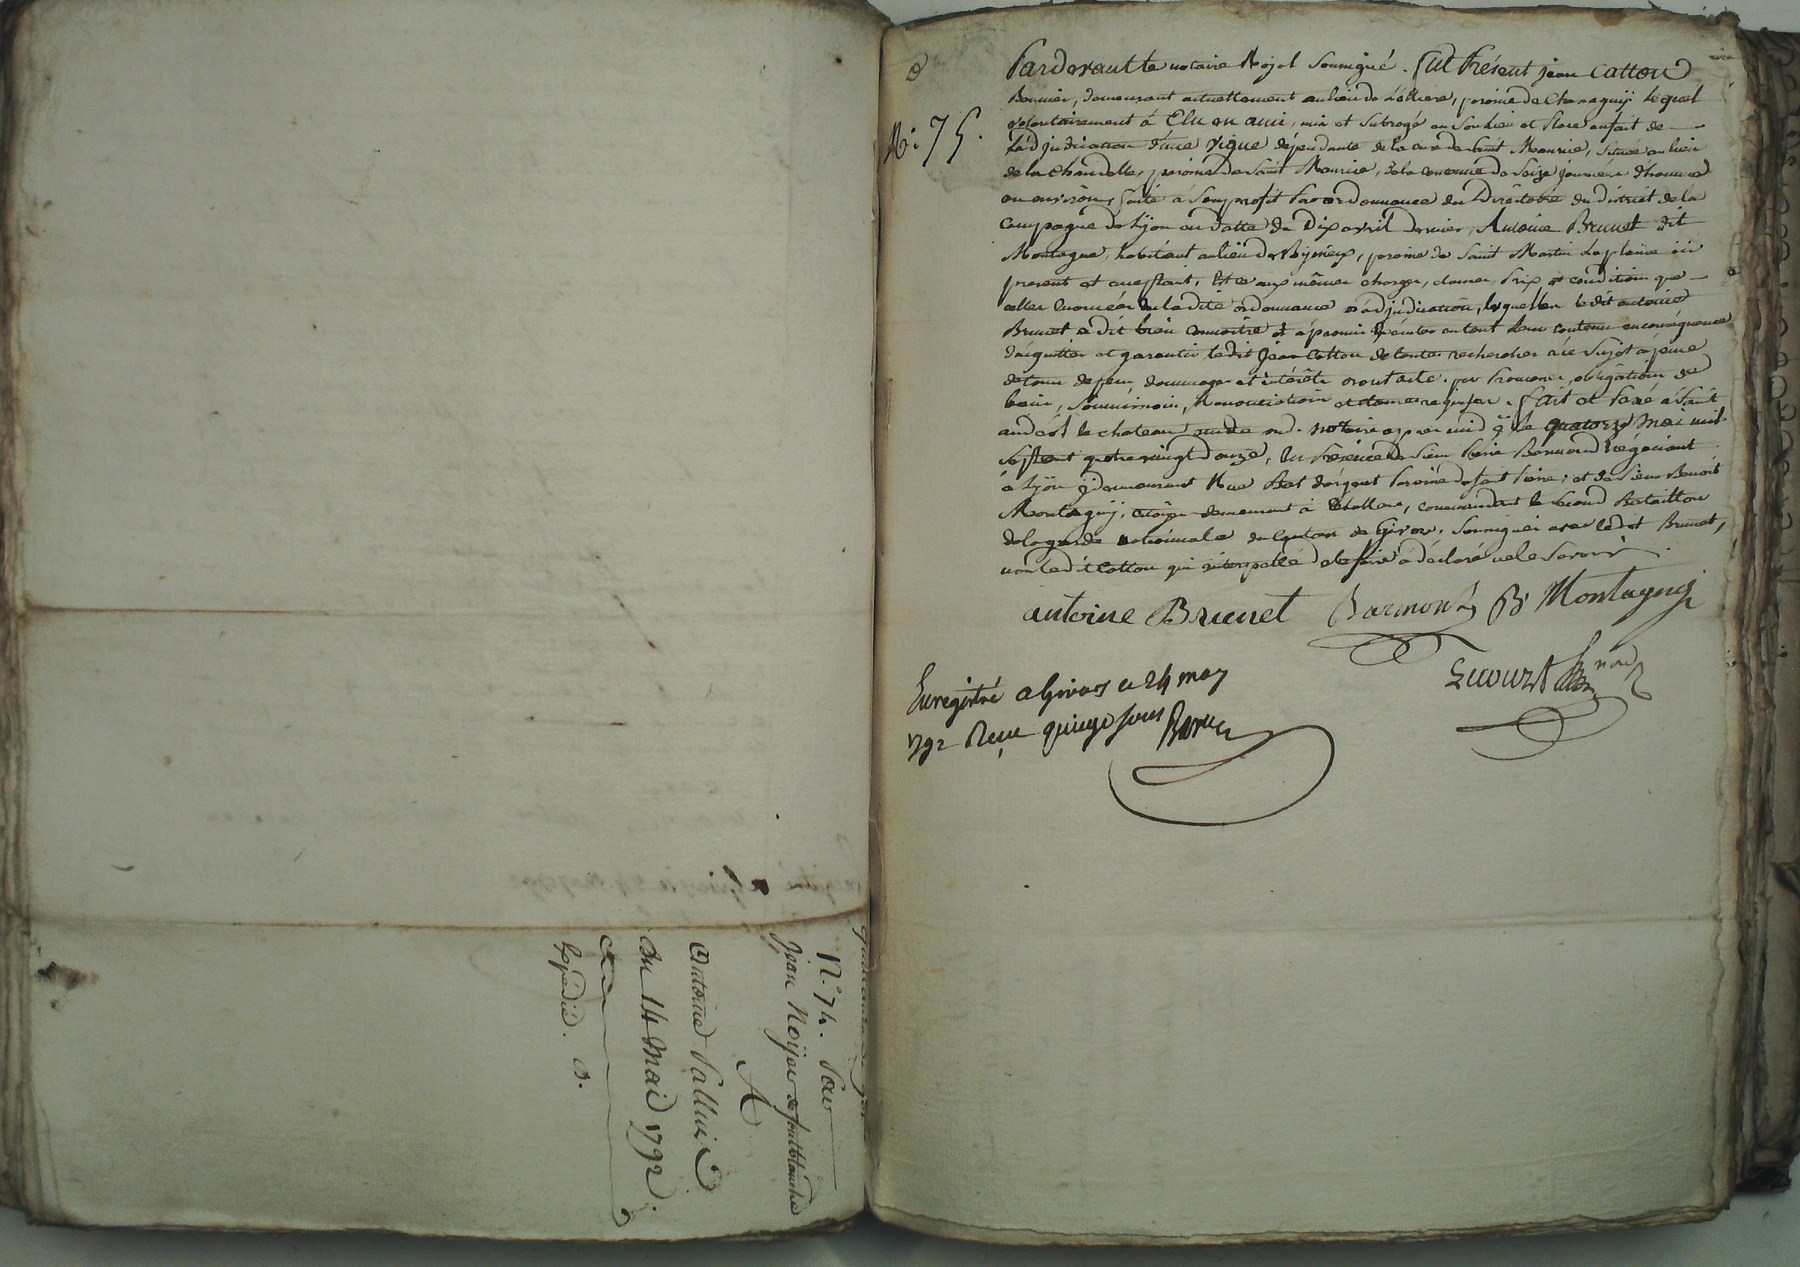 N.° 74. Pour
Jean Noÿer de fontblanche
A
Antoine Pallui
Du 14 Mai 1792.
Expédié.
N.° 75.
Pardevant le notaire Royal soussigné. Fut Présent jean Cattou
demeurant actuellement au lieu de paroisse de Chassaguÿ lequel
volontairement à Elu en ami, mis et subrogé en son lieu et place au fait de
l'adjudication d'une vigne dépendante de la cure de saint Maurice, située au lieu
de la Chandelle, paroisse de Saint Maurice, de la contenue de seize journées d'homme
ou environ, faite à son profit par ordonnance du Directoire du district de la
Campagne de Lÿon en datte du Dix avril dernier, Antoine Brunet dit
Montagne, habitant au lieu de paroisse de Saint Martin la plaine ici
present et acceptant, Et ce aux mêmes charges, clauses, Prix et condition que
celles énoncées en la dite ordonnance d'adjudication, lesquelles le dit antoine
Brunet a dit bien connoitre et a promis exécuter en tout leur contenu en conséquence
d'acquitter et garantir ledit Jean Cattou de toutes recherches à ce sujet à peine
de tous dépens, dommages et intérêts par Promesses, obligation de
biens, soumissions, Renonciation et clauses requises. Fait et Passé à saint
andéol le chateau étude du d. notaire après midi ÿ le quatorze Mai mil
sept cent quatre vingt douze, En Présence de sieur Pierre Barmond Négociant
à Lÿon ÿ demeurant Rue Bat d'argent Paroisse de saint Pierre; et de sieur Benoît
Montaguÿ, demeurant à commandant le second Bataillon
de la garde nationale du Canton de Givors, soussignés avec ledit Brunet,
non ledit Cattou qui interpellé de le faire a déclaré ne le savoir.
antoine Brunet Barmond B. Montaguy
not
Enregistré a Givors ce 24 may
1792 Reçu quinze sous